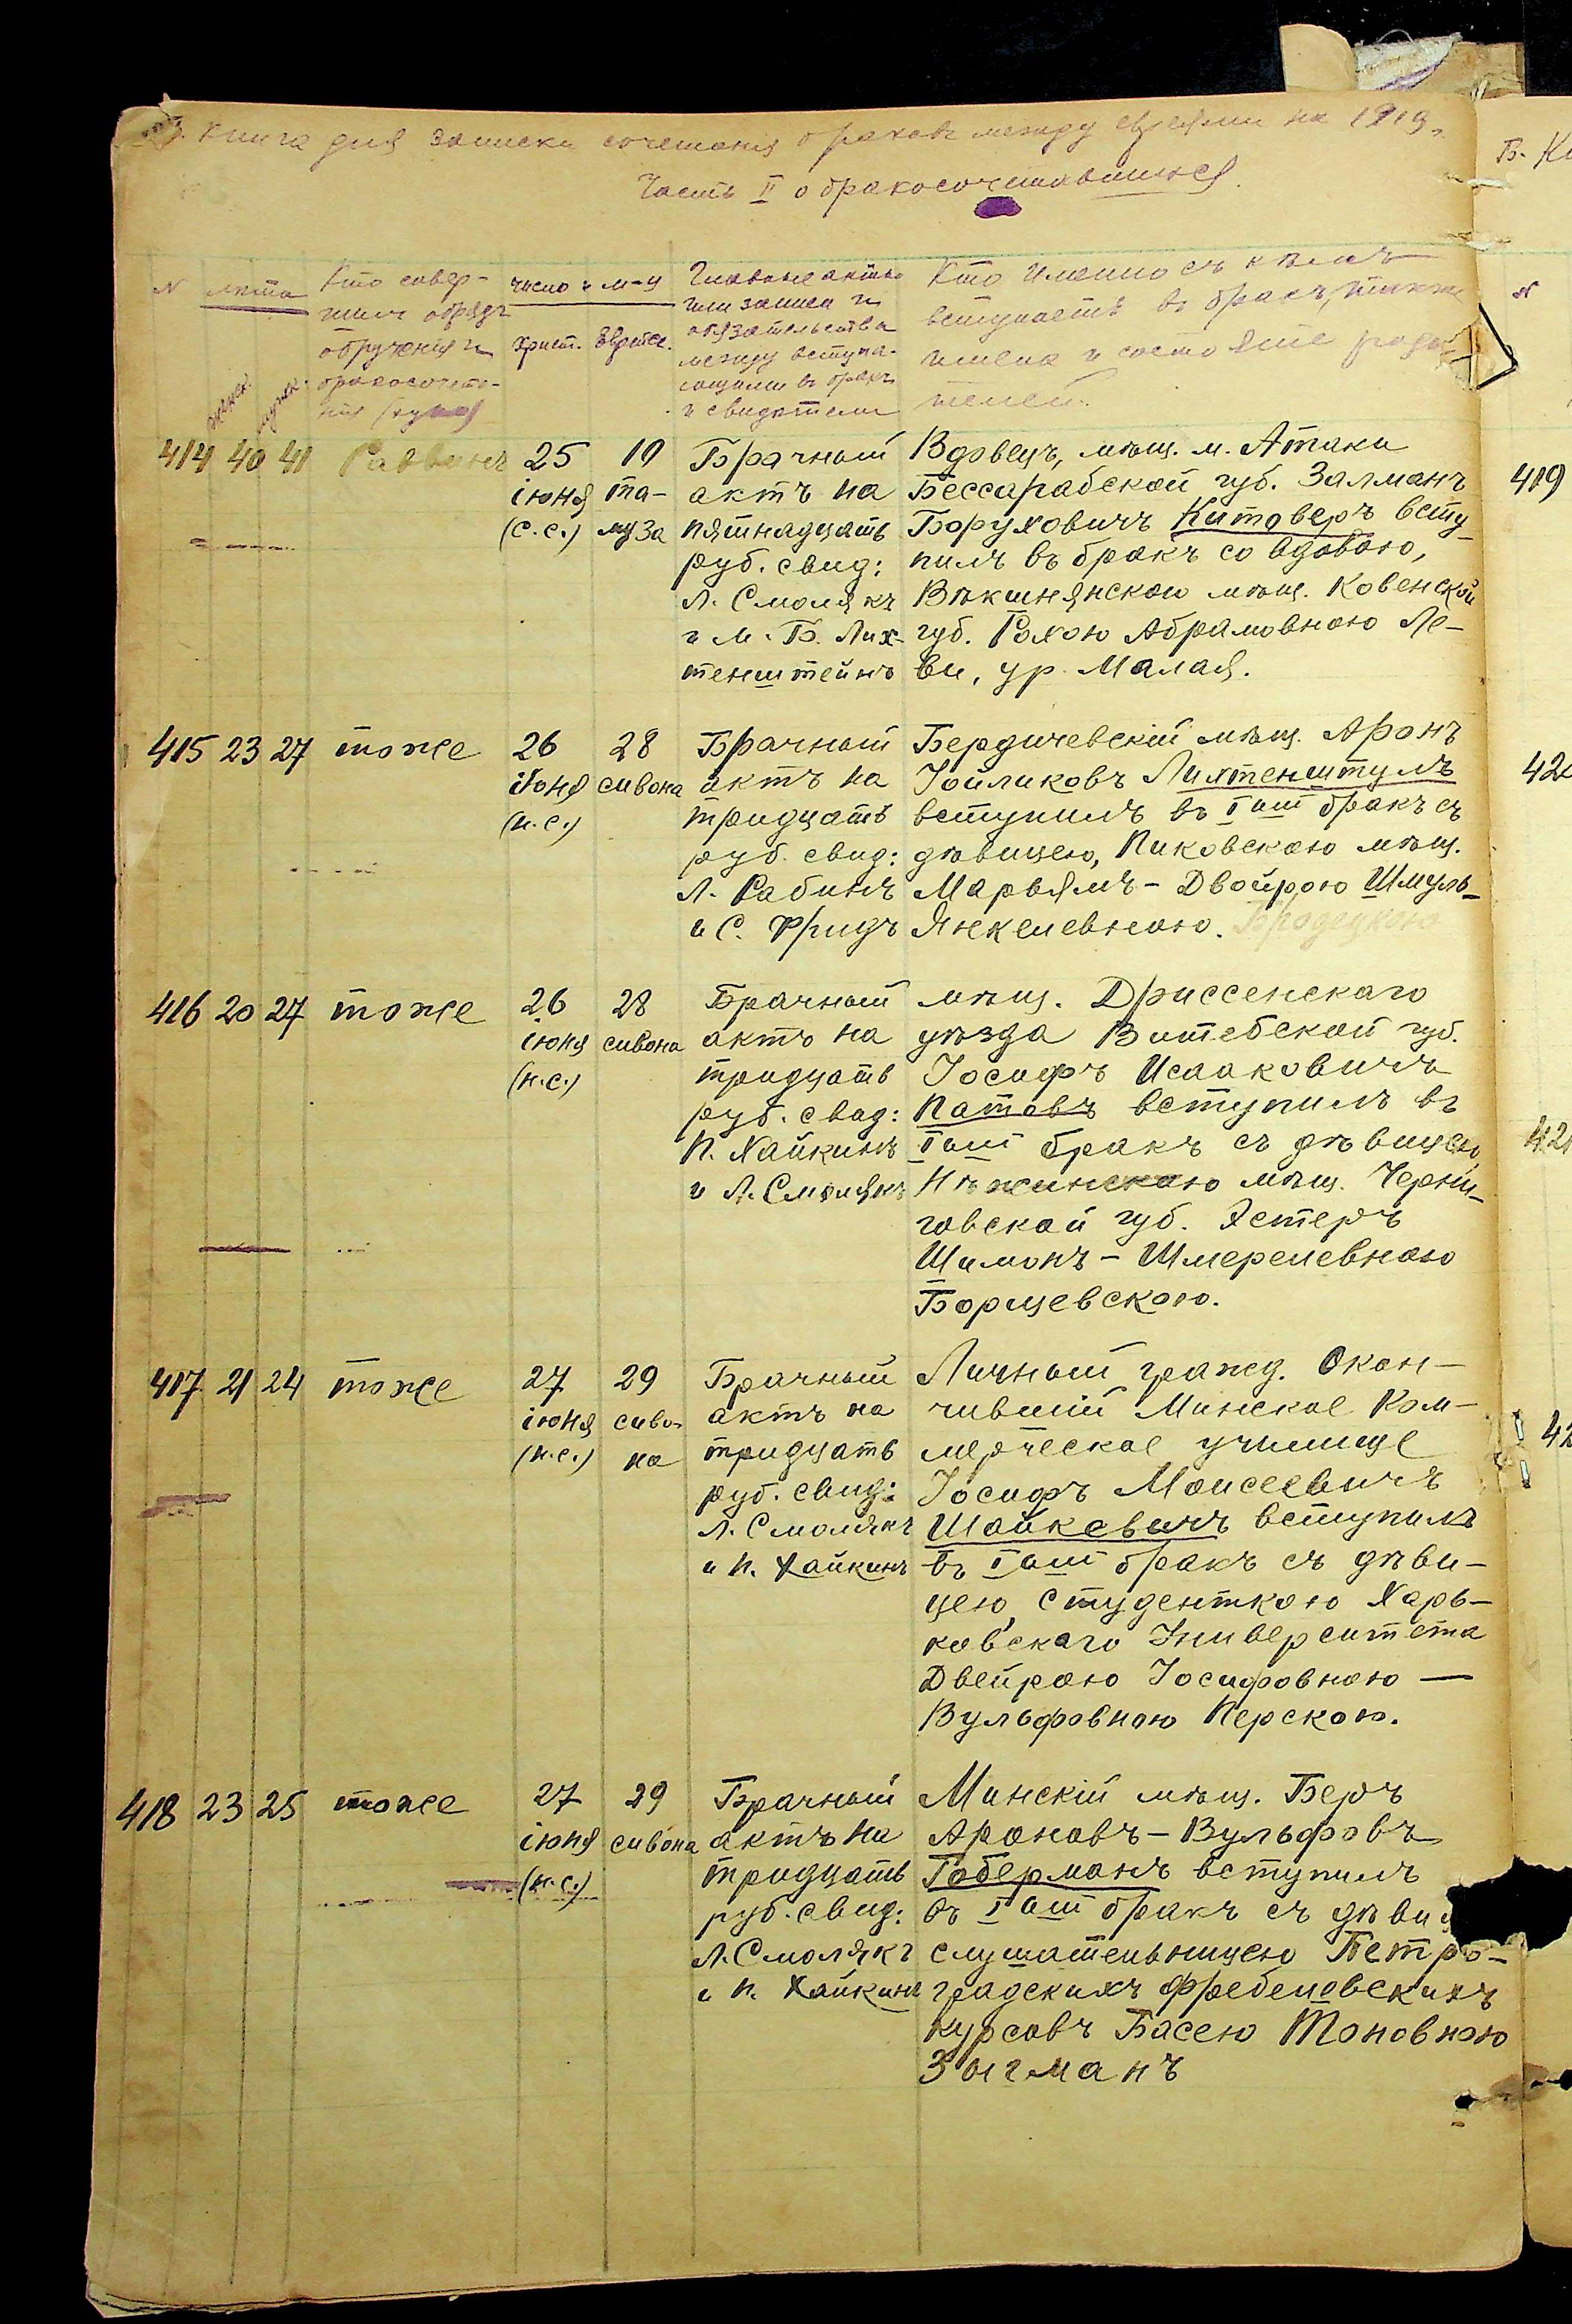 Книга для записки сочетанія браковъ между евреями на 1919 г.
Часть II о бракосочетавшихся.
N лѣта
женск. мужск.
Кто совер-
шилъ обрядъ
обрученія и
бракосочета-
нія
число и м-ц
христ. Еврейск.
Главные акты
или записи и
обязательства
между вступа-
ющими въ бракъ
и свидѣтели
Кто именно съ кѣмъ
вступаетъ въ бракъ, также
имена и состояніе роди-
телей.
414 40 41 Раввинъ 25 19 Брачный Вдовецъ, мѣщ. м. Атаки
іюня та- актъ на Бессарабской губ. Залманъ
(с.с.) муза пятнадцать Боруховичъ Китоверъ всту-
руб. свид: пилъ въ бракъ со вдовою,
Л. Смолякъ Вѣкшнянскою мѣщ. Ковенской
и М. Б. Лих- губ. Рохою Абрамовною Ле-
тенштейнъ ви, ур. Малая.
415 23 27 тоже 26 28 Брачный Бердичевскій мѣщ. Аронъ
іюня сивона актъ на Іойликовъ Лихтенштулъ
(н.с.) тридцать вступилъ въ Iый бракъ съ
руб. свид: дѣвицею, Пиковскою мѣщ.
Л. Рабинъ Марьямъ-Двойрою Шмуль-
и С. Фридъ Янкелевною. Бродецкою
416 20 27 тоже 26 28 Брачный мѣщ. Дриссенскаго
іюня сивона актъ на уѣзда Витебской губ.
(н.с.) тридцать Іосифъ Исааковичъ
руб. свид: Патовъ вступилъ въ
П. Хайкинъ Iый бракъ съ дѣвицею,
и Л. Смолякъ Нѣжинскою мѣщ. Черни-
говской губ. Эстеръ
Шимонъ-Шмерелевною
Борщевскою.
417 21 24 тоже 27 29 Брачный Личный гражд. Окон-
іюня сиво- актъ на чившій Минское Ком-
(н.с.) на тридцать мерческое училище
руб. свид: Іосифъ Моисеевичъ
Л. Смолякъ Шайкевичъ вступилъ
и П. Хайкинъ въ Iый бракъ съ дѣви-
цею, студенткою Харь-
ковскаго Университета
Двейрою Іосифовною —
Вульфовною Перскою.
418 23 25 тоже 27 29 Брачный Минскій мѣщ. Беръ
іюня сивона актъ на Ароновъ-Вульфовъ
(н.с.) тридцать Гоберманъ вступилъ
руб. свид: въ Iый бракъ съ дѣвиц
Л. Смолякъ слушательницею Петро-
и П. Хайкинъ градскихъ Фребелевскихъ
курсовъ Басею Тоновною
Зыгманъ
Б. Кн
N
419
42
42
42